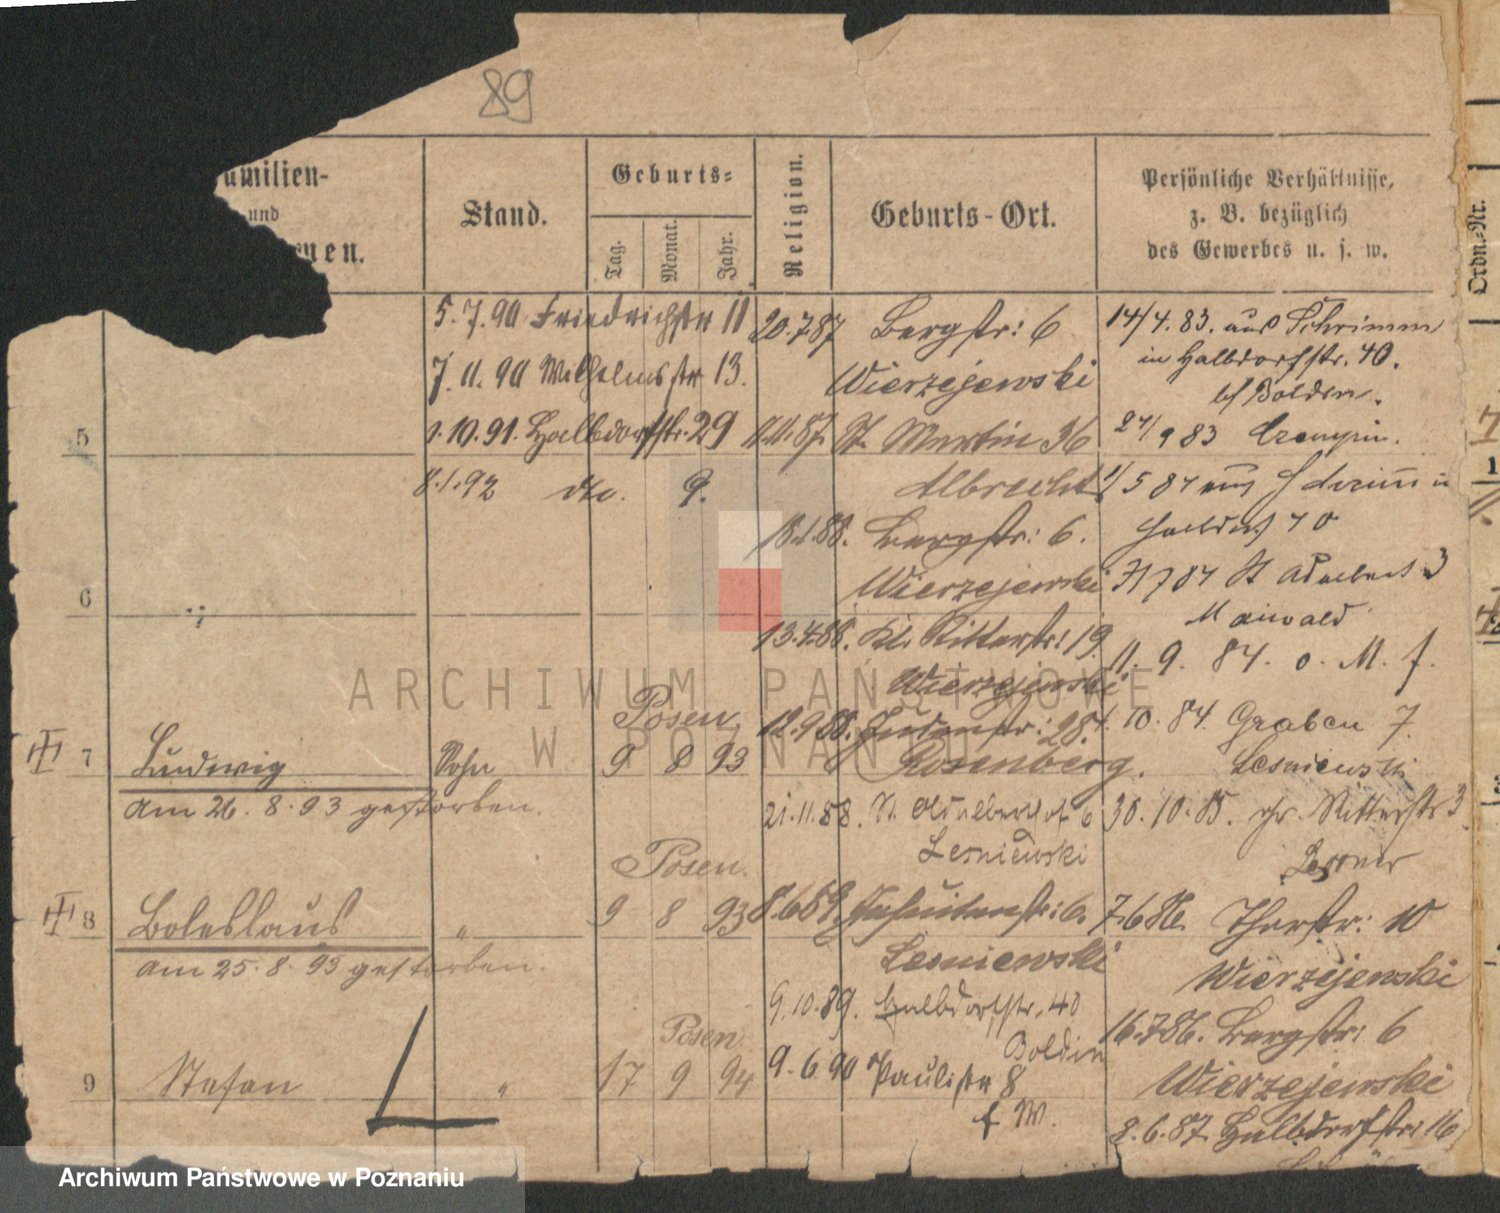 89
amilien-
und
nen.
Stand.
Geburts-
Tag.
Monat.
Jahr.
Religion.
Geburts-Ort.
Persönliche Verhältnisse,
z. B. bezüglich
des Gewerbes u. s. w.
Ordn.-Nr.
5.7.90 Friedrichstr 11
7.11.90 Wilhelmsstr 13.
1.10.91. Halbdorfstr. 29
8.1.92 dto. 9.
20.7.87 Bergstr: 6
Wierzejewski
11.11.87. St. Martin 36
Albrecht
18.1.88. Bergstr: 6.
Wierzejewski
13.4.88. Kl. Ritterstr: 19.
Wierzejewski
12.9.88. Judenstr: 28.
Rosenberg.
21.11.88. St. Adalbert 6
Lesniewski
8.6.89. Jesuitenstr: 6.
Lesniewski
9.10.89. Halbdorfstr. 40
Boldin
9.6.90 Paulistr 8
b/ W.
14/4.83. aus Schrimm
in Halbdorfstr. 40.
b/ Boldin.
27/9 83 Czempin.
1/5 84 aus Schrimm in
40
31 7 84 St Adalbert 3
Maiwald
11. 9. 84. o. M. f.
1. 10. 84. Graben 7.
Lesniewski
30.10.85. gr. Ritterstr 3
7.6.86. Thorstr: 10
Wierzejewski
16.7.86. Bergstr: 6
Wierzejewski
2.6.87. Halbdorfstr: 16
5
6
III 7 Ludwig Sohn Posen 9 8 93
am 26. 8. 93 gestorben.
III 8 Boleslaus " Posen. 9 8 93
am 25. 8. 93 gestorben.
9 Stefan " Posen 17 9 94
ARCHIWUM PAŃSTWOWE
W POZNANIU
Archiwum Państwowe w Poznaniu